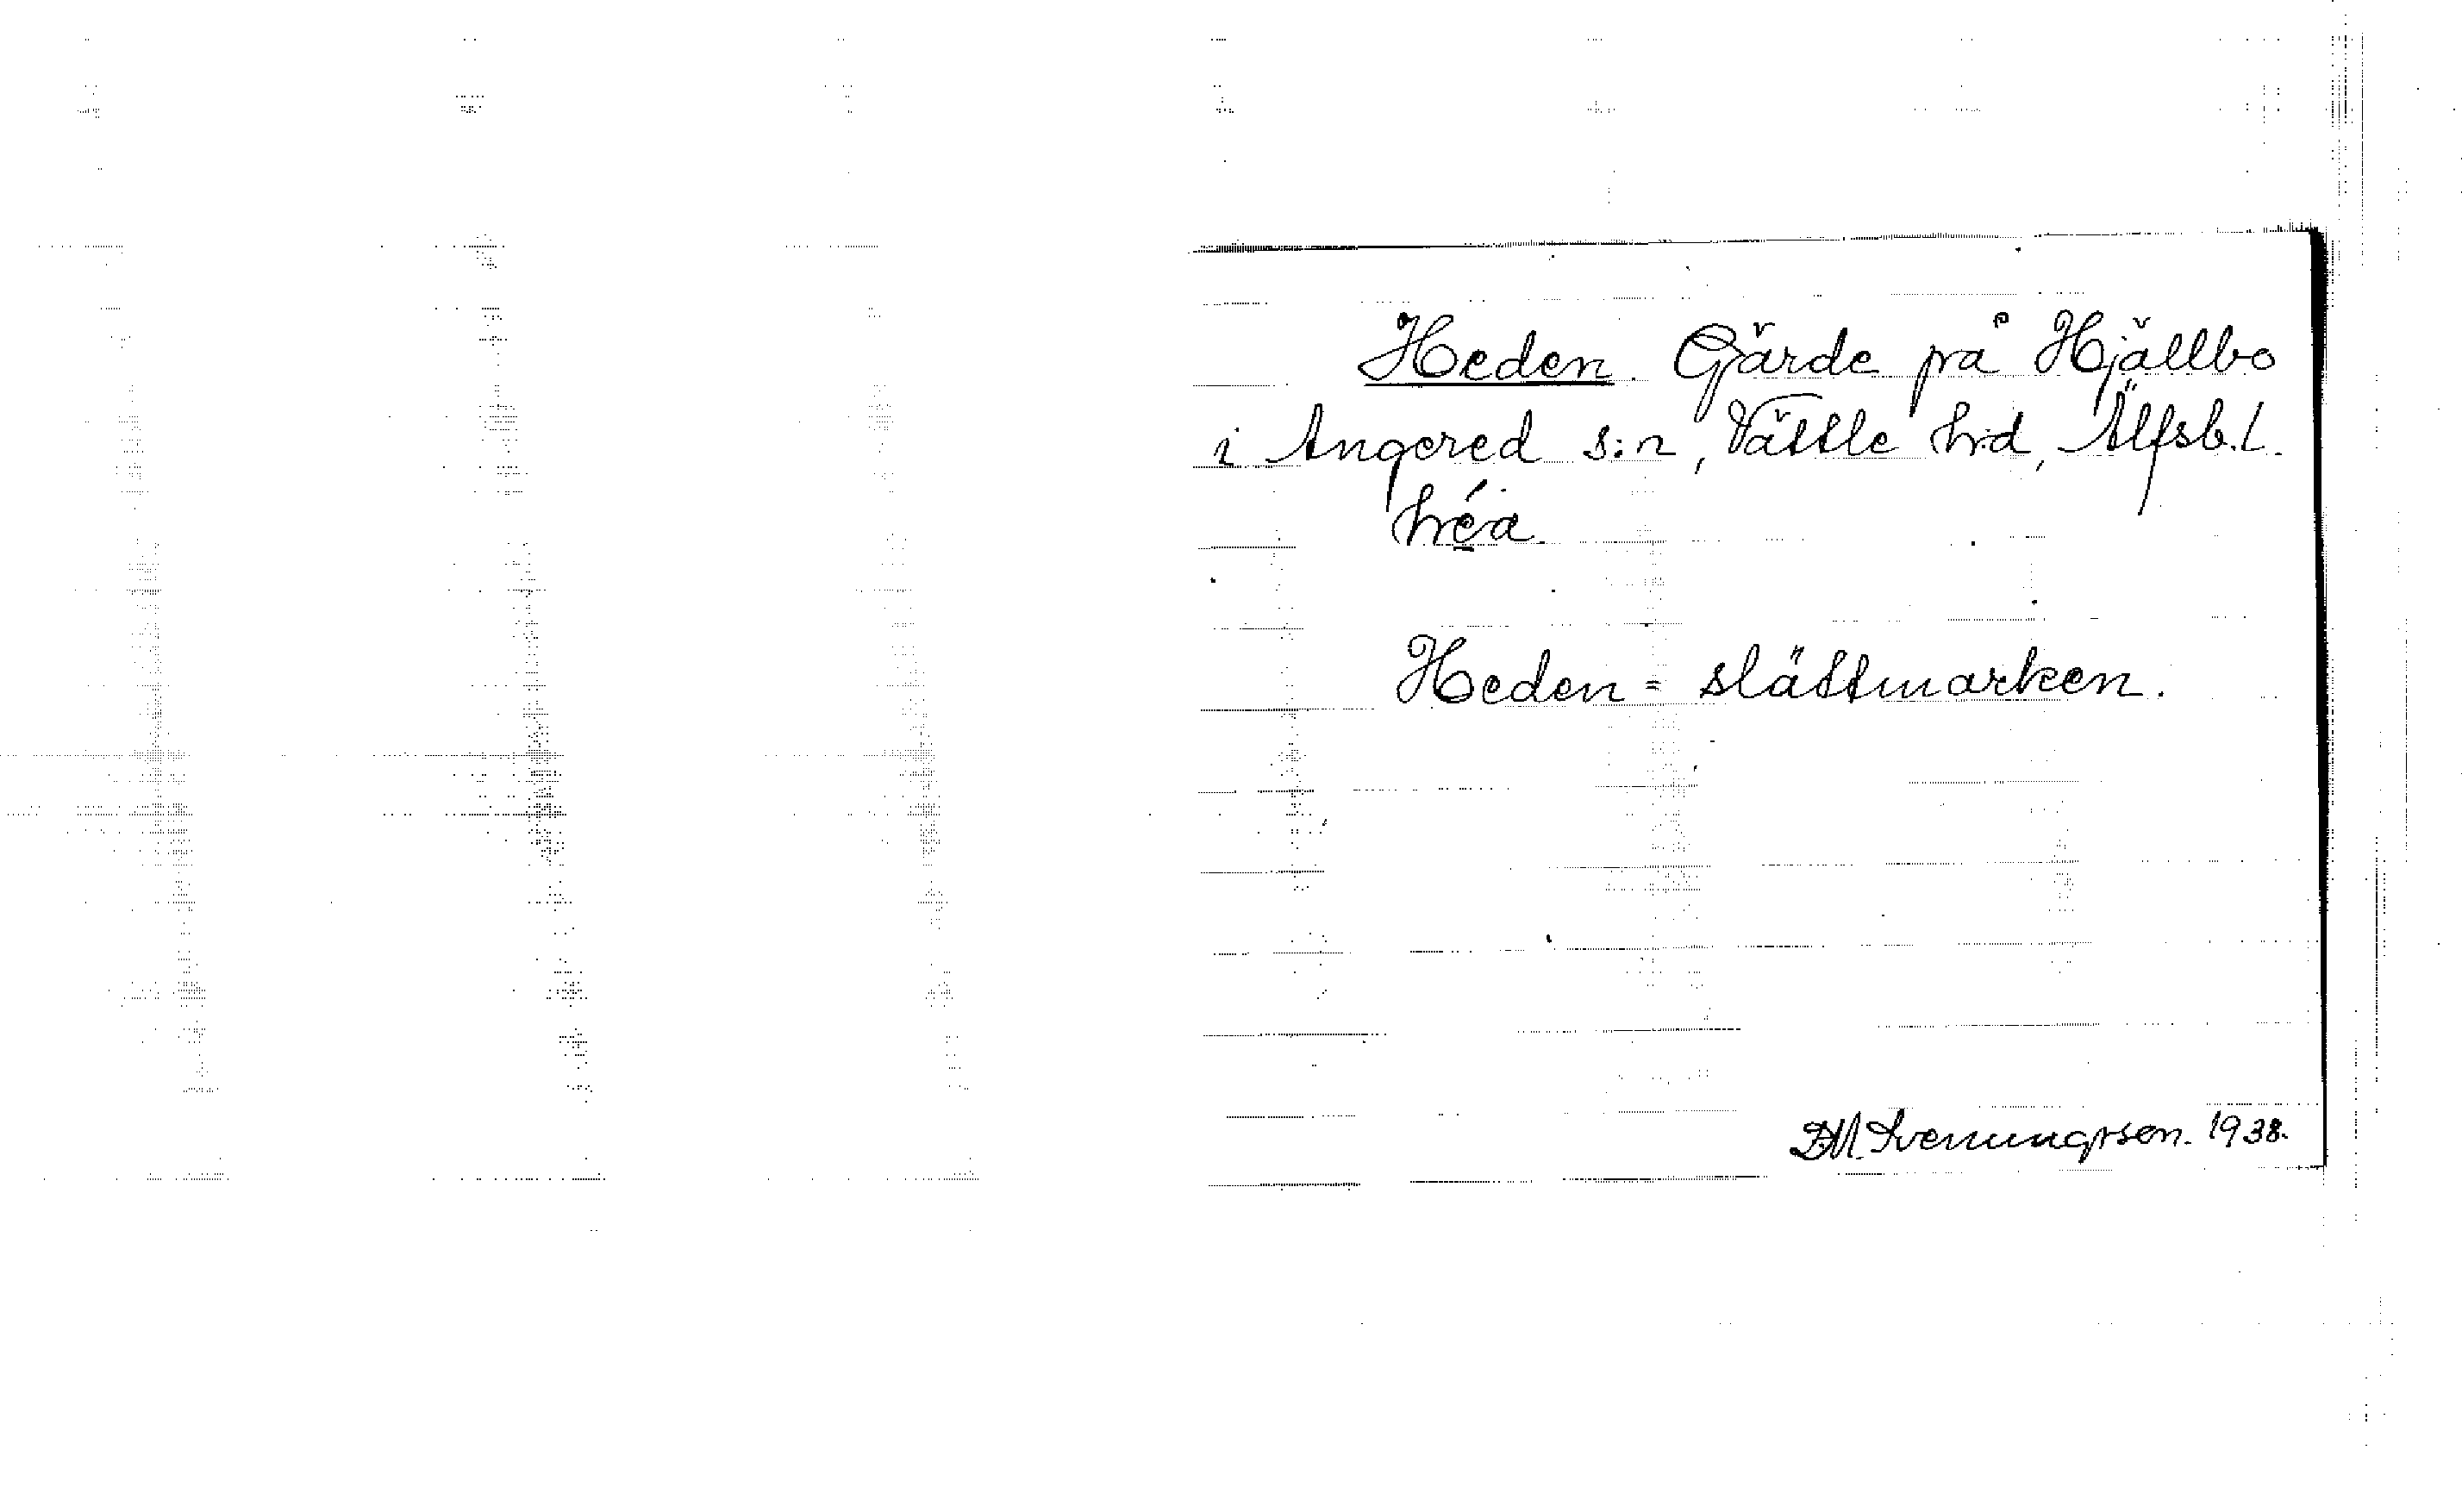 Heden. Gärde på Hjällbo
i Angered s:n, Vättle hd, Älfsb. l.
héa
Heden = slättmarken.
DM Svenungsson. 1938.